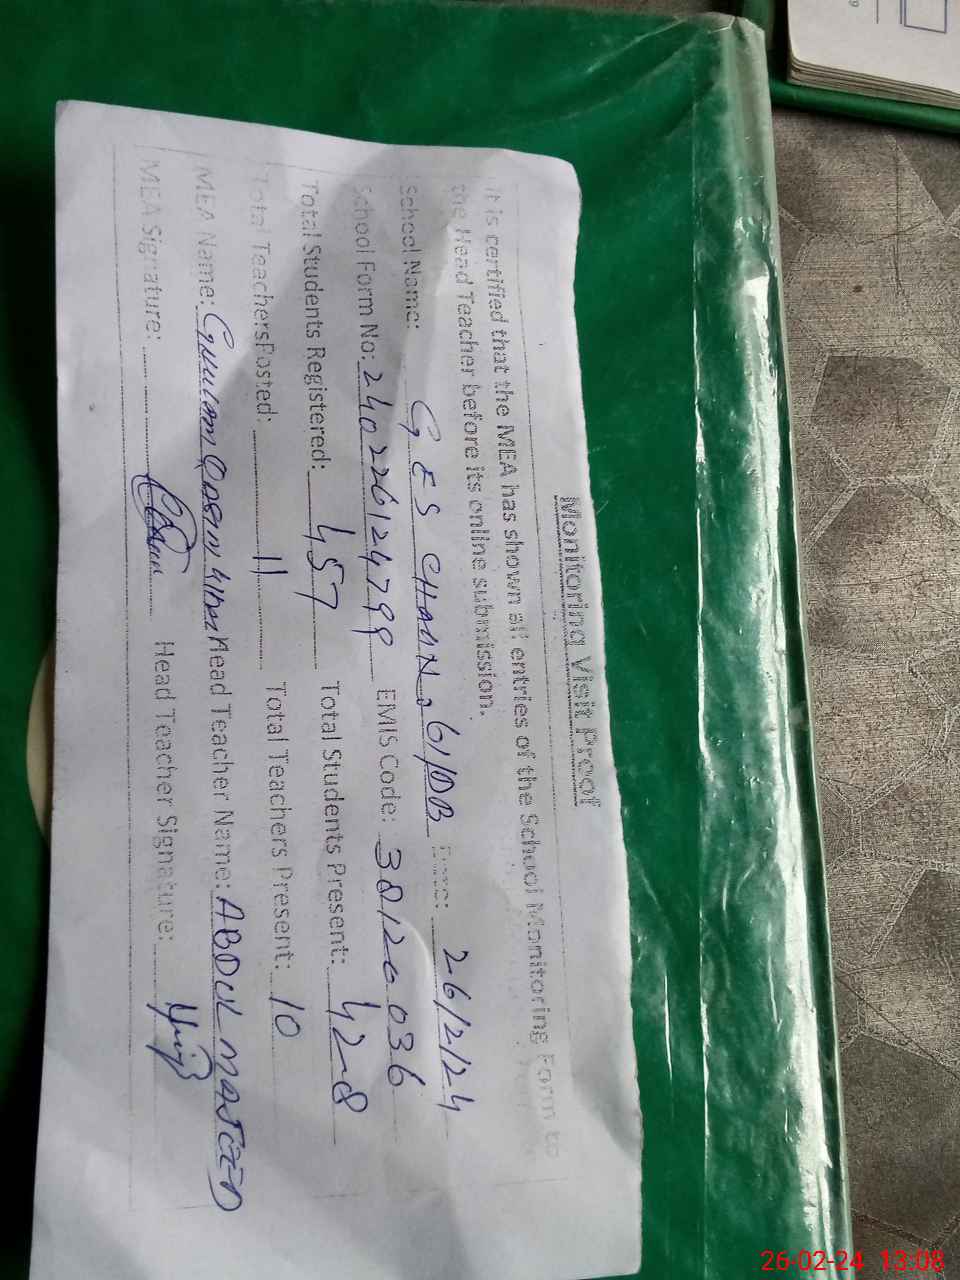 Monitoring Visit Proof
It is certified that the MEA has shown all entries of the School Monitoring Form to
the Head Teacher before its online submission.
School Name: GES CHAK No 61/DB Date: 26/2/24
School Form No: 24022612479 EMIS Code: 38120036
Total Students Registered: 457 Total Students Present: 428
Total TeachersPosted: 11 Total Teachers Present: 10
MEA Name: Head Teacher Name: ABDUL MAJEED
MEA Signature: Head Teacher Signature:
26-02-24 13:08